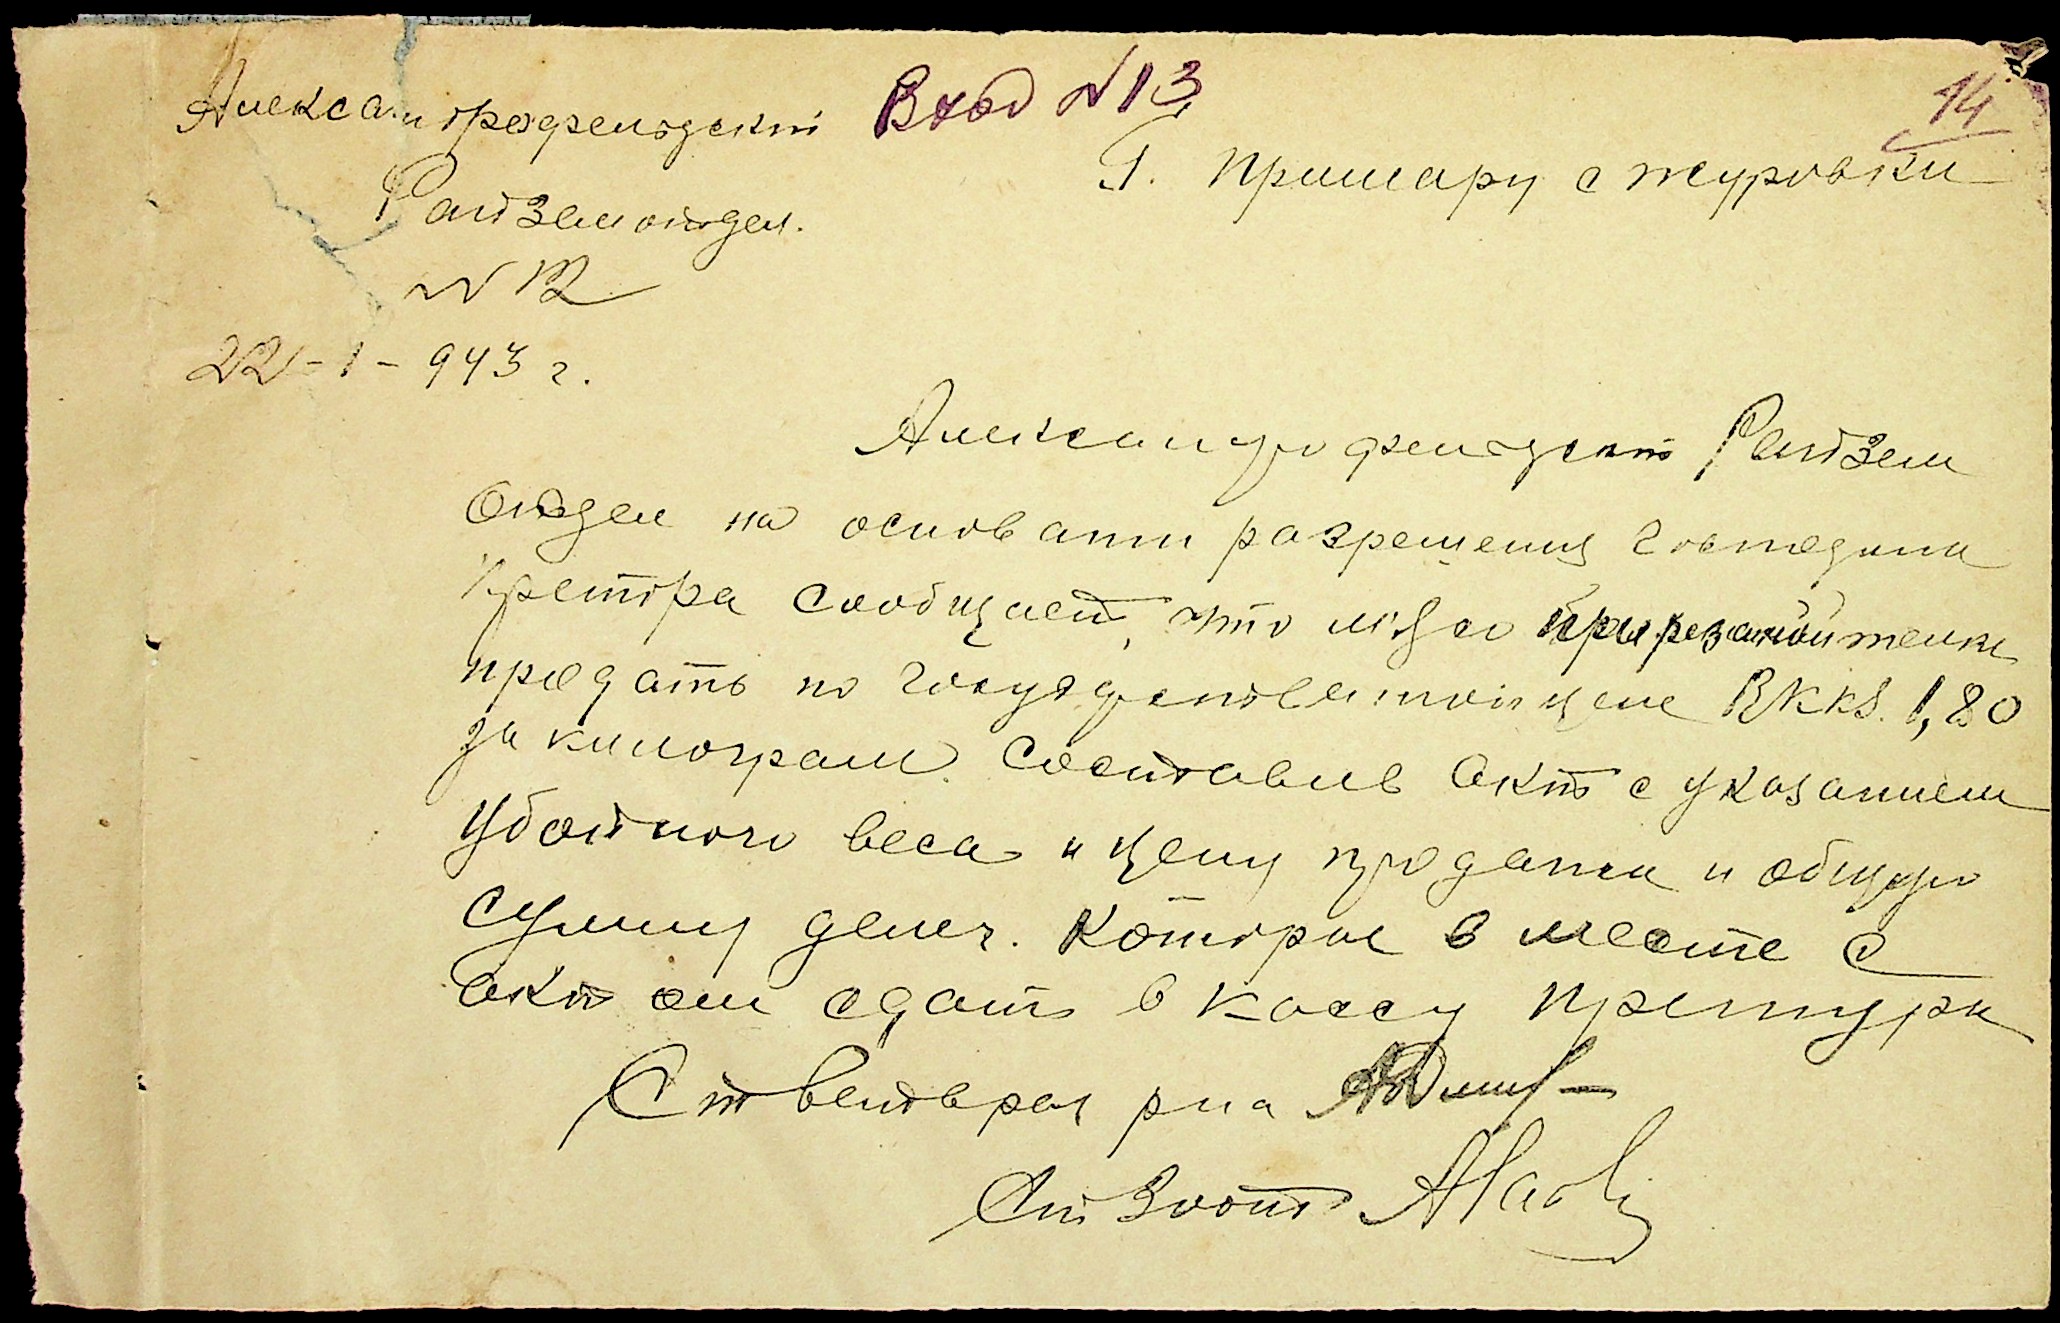 Александрофельдский
Вход N 13
14
Г. Примару с Журовки
Райземотдел.
N 12
22-1-943 г.
Александрофельдский Райзем
отдел на основании разрешения господина
Претора сообщает, что мясо прирезаной телки
продать по государственной цене RKKS. 1,80
за килограм. Составив акт с указанием
убойного веса и цену продажи и общую
сумму денег. Которые в месте с
актом сдать в кассу претуры
Ст ветврач рна
Ст Зоот